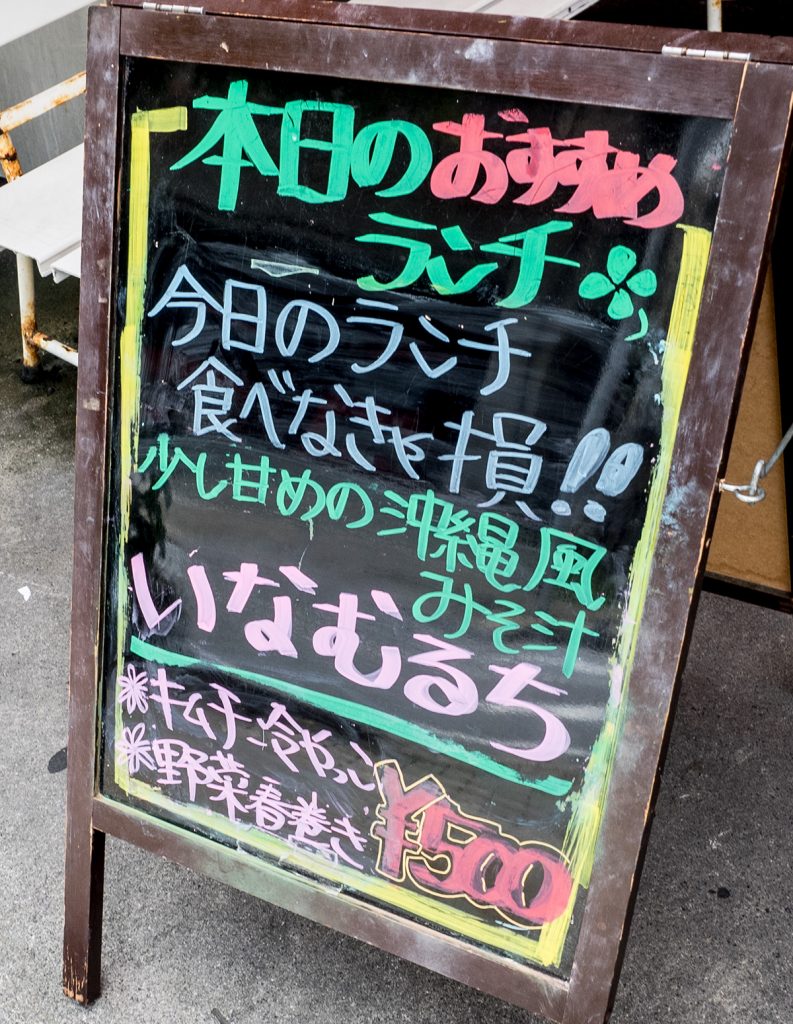 本日のおすすめ
ランチ
今日のランチ
食べなきゃ損!!
少し甘めの沖縄風
みそ汁
いなむるち
キムチ冷やっこ
野菜春巻き
¥500